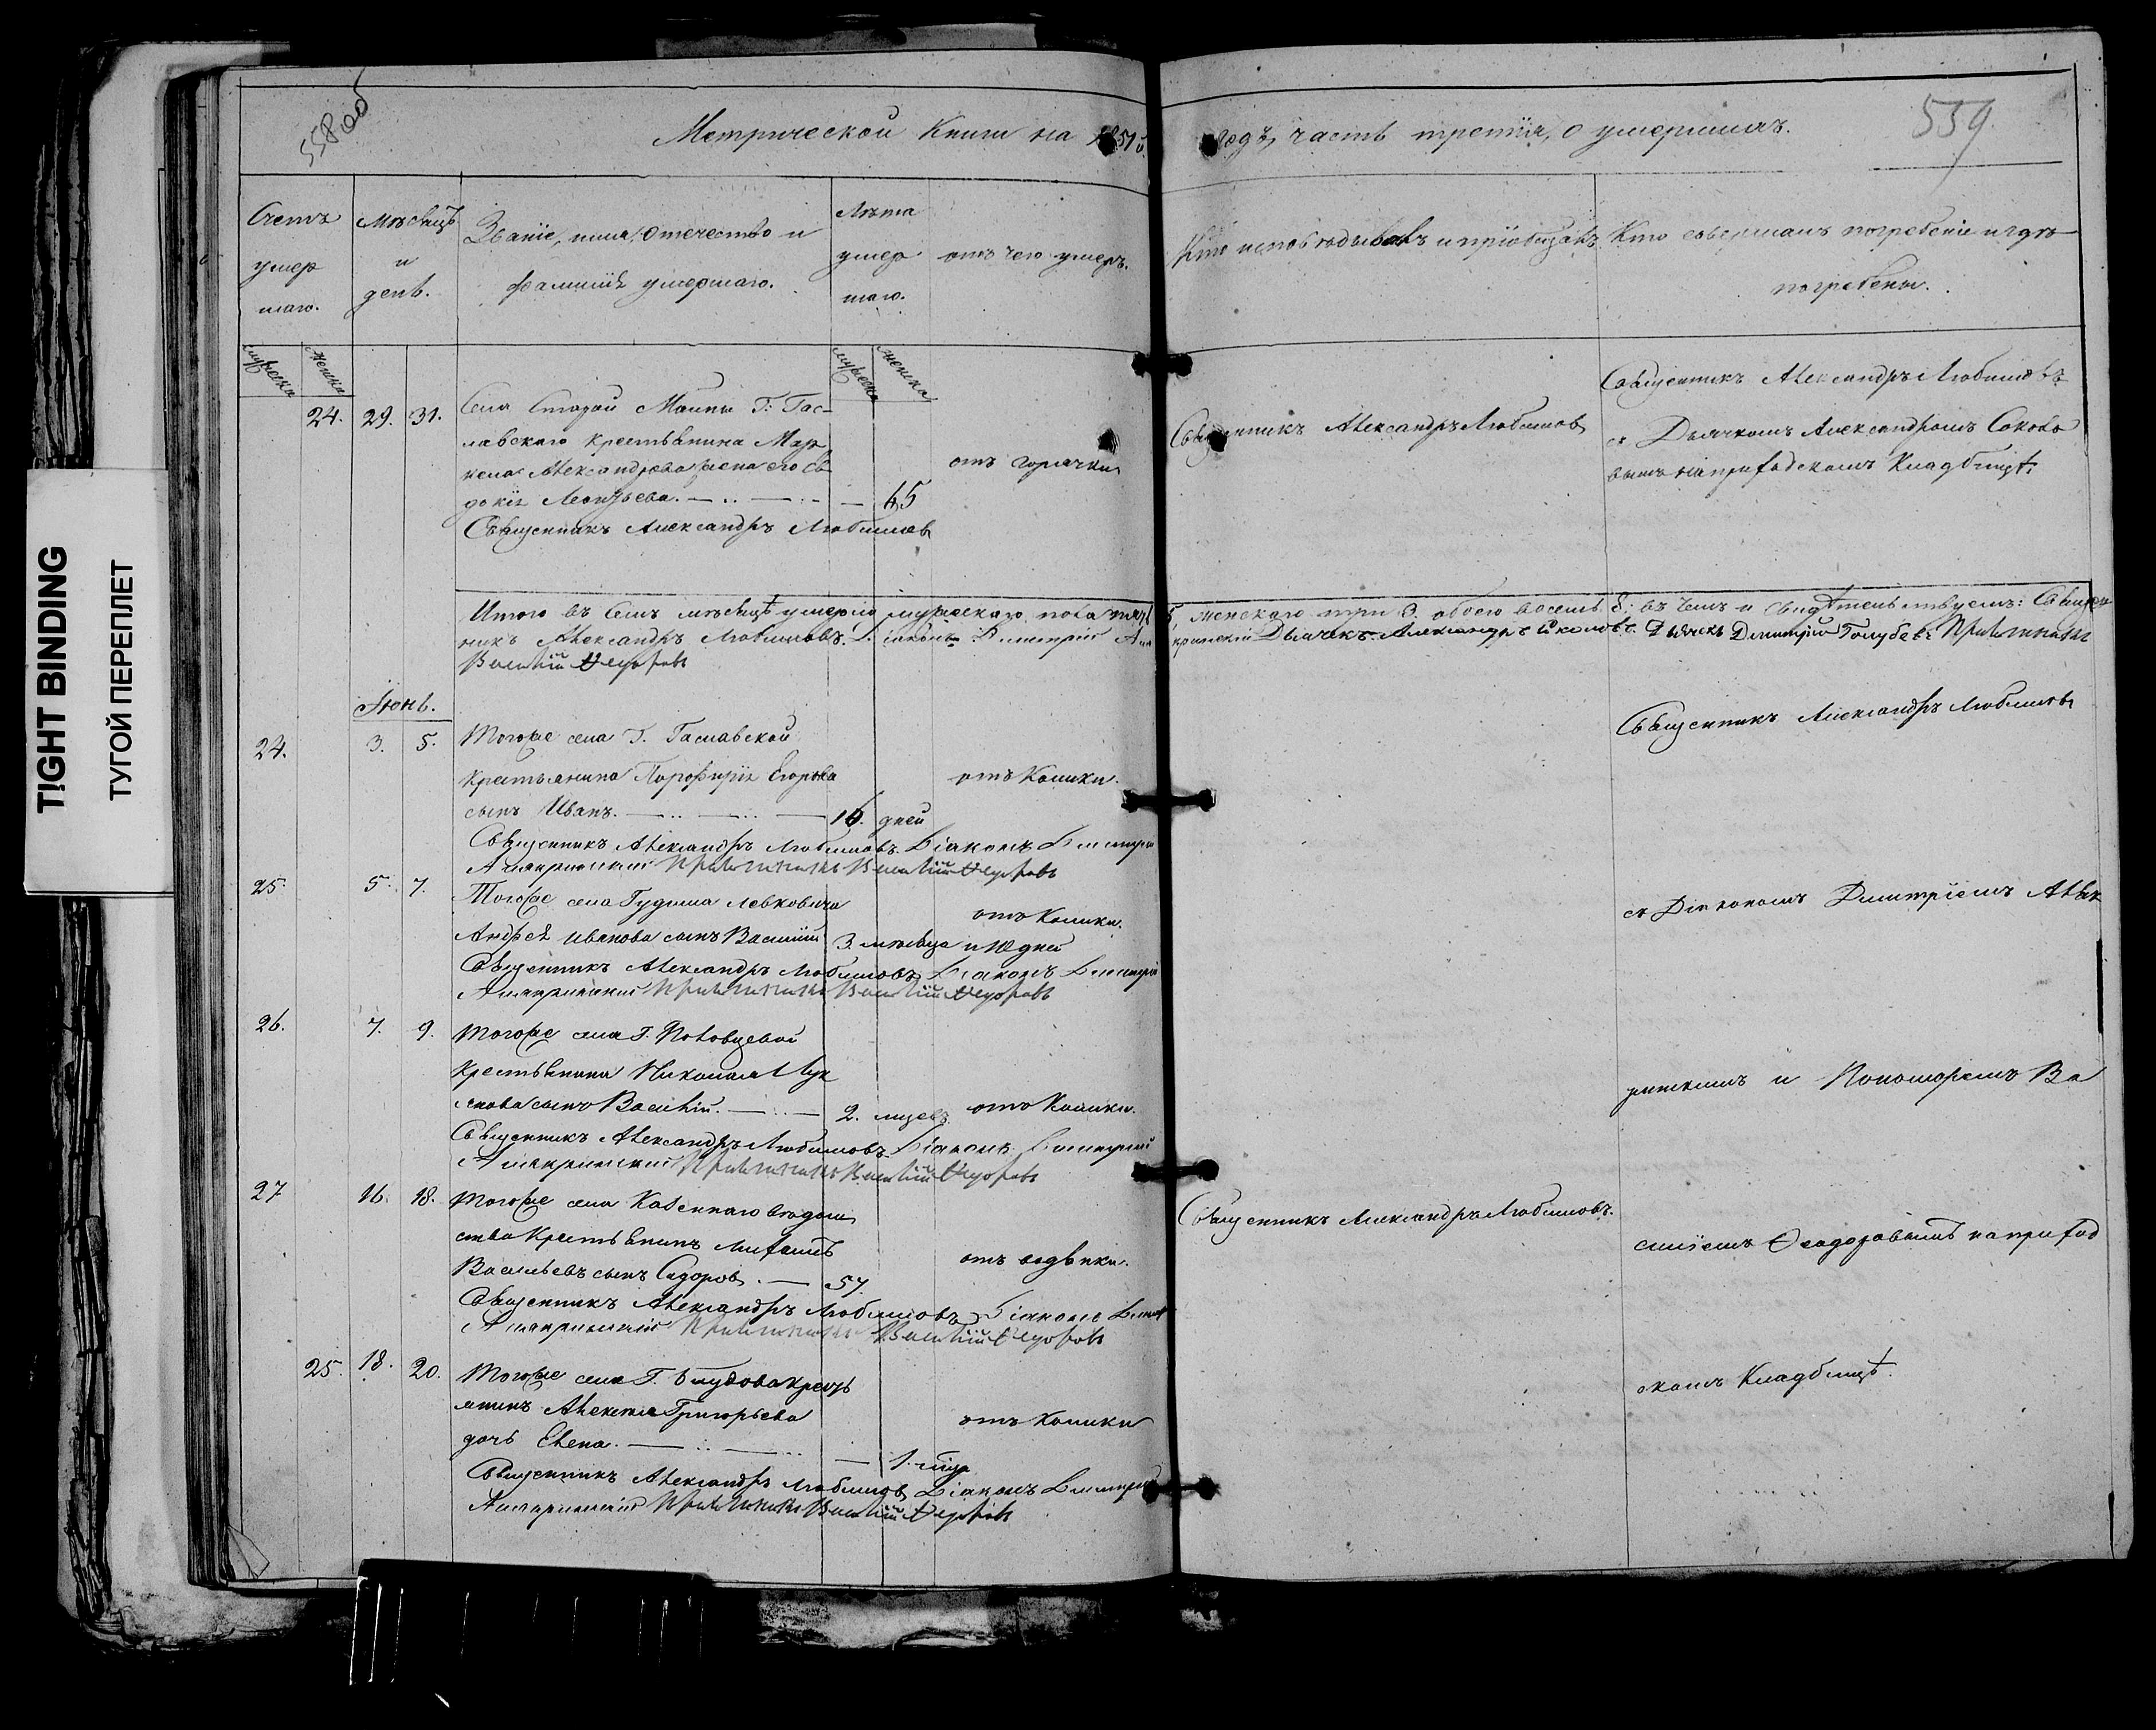 TIGHT BINDING
ТУГОЙ ПЕРЕПЛЕТ
558 об
559.
Метрической Книги на 1851й годъ, часть третія, о умершихъ.
Счетъ умершаго.
Мѣсяцъ и день.
Званіе, имя, отечество и фамилія умершаго.
Лѣта умершаго.
отъ чего умеръ.
Кто исповѣдывалъ и пріобщалъ
Кто совершалъ погребеніе и гдѣ погребены.
мужеска
женска
мужеска
женска
24. 29. 31.
Села Старой Маины Г: Гас-
лавскаго крестьянина Мар
кела Александрова жена его Ев
докія Леонтьева. — 65
отъ горячки
Священникъ Александръ Любимовъ
Священникъ Александръ Любимовъ
Священникъ Александръ Любимовъ
съ Дьячкомъ Александромъ Соколо
вымъ на приходскомъ Кладбищѣ.
Итого въ семъ мѣсяцѣ умерло мужескаго пола пять 5, женскаго три 3. обоего восемь 8: въ чемъ и свидѣтельствуемъ: Священ
никъ Александръ Любимовъ. Діаконъ Димитрій Дьячекъ Александръ Соколовъ. Дьячекъ Димитрій Голубевъ
Василій Ѳедоровъ
Іюнь.
24. 3. 5.
Тогоже села Г. Гаславской
крестьянина Порфирія Егорова
сынъ Иванъ. — 16. дней
отъ Колики.
Священникъ Александръ Любимовъ. Діаконъ Димитрій
Василій Ѳедоровъ
Священникъ Александръ Любимовъ
25. 5. 7.
Тогоже села
Андрея Иванова сынъ Василій 3. мѣсяца и 10 дней
отъ Колики.
Священникъ Александръ Любимовъ Діаконъ Димитрій
Василій Ѳедоровъ
съ Діакономъ Димитріемъ
26. 7. 9.
Тогоже села Г. Половцевой
крестьянина Николая Лук
янова сынъ Василій. — 2. мцевъ
отъ Колики.
Священникъ Александръ Любимовъ Діаконъ Димитрій
Василій Ѳедоровъ
и Пономаремъ Ва
27 16. 18.
Тогоже села Казеннаго вѣдом
ства Крестьянинъ
Васильевъ сынъ Сидоровъ. — 57.
отъ водянки.
Священникъ Александръ Любимовъ Діаконъ
Василій Ѳедоровъ
Священникъ Александръ Любимовъ.
силіемъ Ѳеодоровымъ на приход
25. 18. 20.
Тогоже села Г. Блудова крест
янинъ Алексея Григорьева
дочь Елена. — 1. мца
отъ Колики
Священникъ Александръ Любимовъ Діаконъ Димитрій
Василій Ѳедоровъ
скомъ Кладбищѣ.